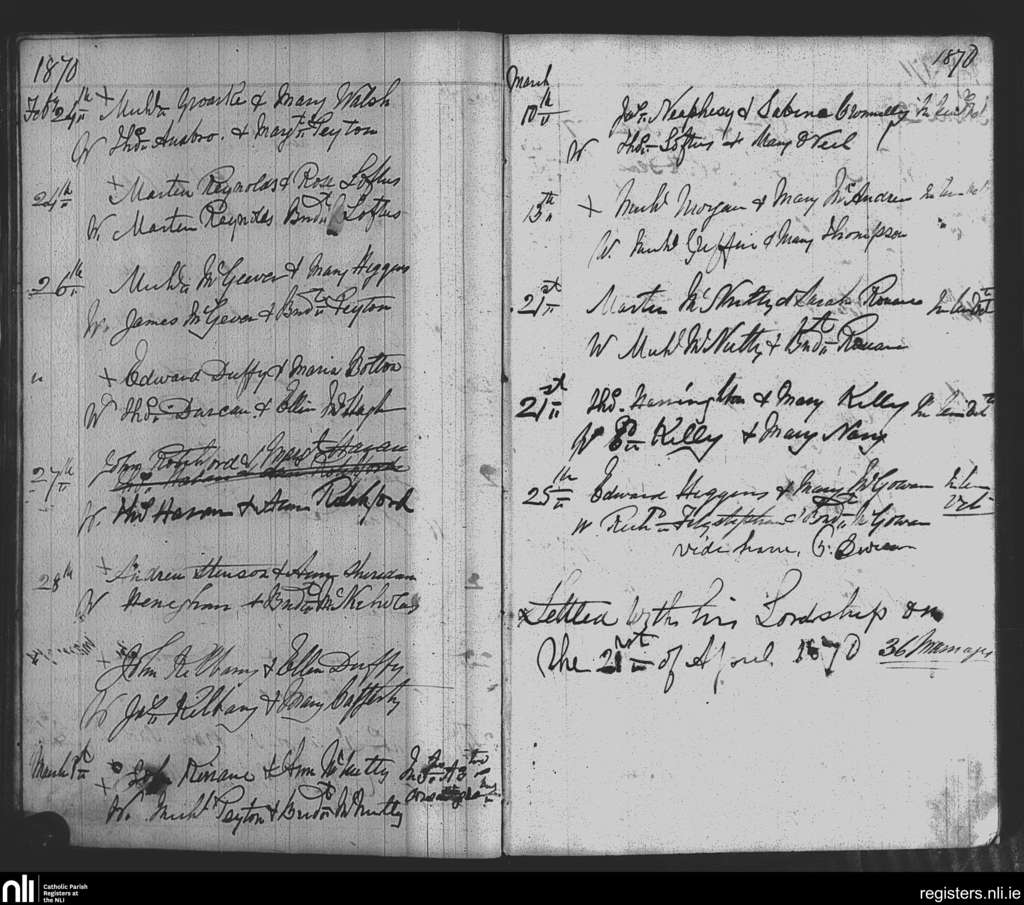 1870
Feb 24th + Michl Groarke & Mary Walsh
W Thos & Margt Peyton
24th + Martin Reynolds & Rose Loftus
W Martin Reynolds Bridt Loftus
26th Michl McGeever & Mary Heggens
W. James McGever & Bridt Peyton
" + Edward Duffy & Maria Bolton
W Thos Duncan & Ellen McHugh
27th John Rotchford & Margt Haran
W Thos Haran & Anne Rotchford
28th + Andrew Stenson & Anny Sheridan
W Heneghan & Bridt McNicholas
+ John Kilbany & Ellen Duffy
W Jas Kilbany & Mary Cafferty
March 1st + John Ronane & Ann McNulty In
W. Michl Peyton & Bridt McNulty
1870
March
10th Jas Neaphsey & Sabina Cronnelly
W Thos Loftus & Mary O Neil
13th + Michl Morgan & Mary McAndrew
W. Michl Griffin & Mary Thompson
21st Martin McNulty & Sarah Ronane
W Michl McNulty & Bridt Ronane
21st Thos. Harrington & Mary Kelly
W Ed Kelly & Mary Nary
25th Edward Heggens & Mary McGowan
W. Richd Fitzstephen & Bridt McGowan
Settled with his Lordship on
the 21st of April 1870 36 Marriages
nli Catholic Parish
Registers at
the NLI
registers.nli.ie